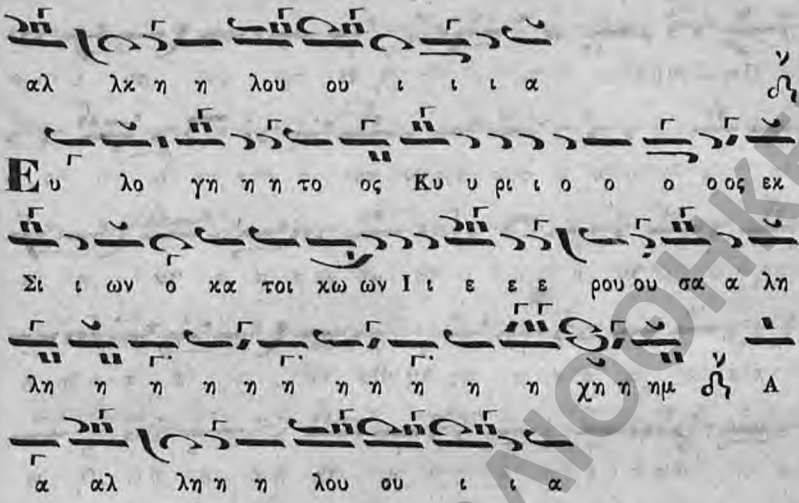 αλ λκ η η λου ου ι ι ι α
ν
Ευ λο γη η η το ος Κυ υ ρι ι ο ο ο ο ος εκ
Σι ι ων ὁ κα τοι κω ων Ι ι ε ε ε ρου ου σα α λη
λη η η η η η η η η η η χη η ημ ν Α
α αλ λη η η λου ου ι ι α
ΛΙΟΘΗΚΕ